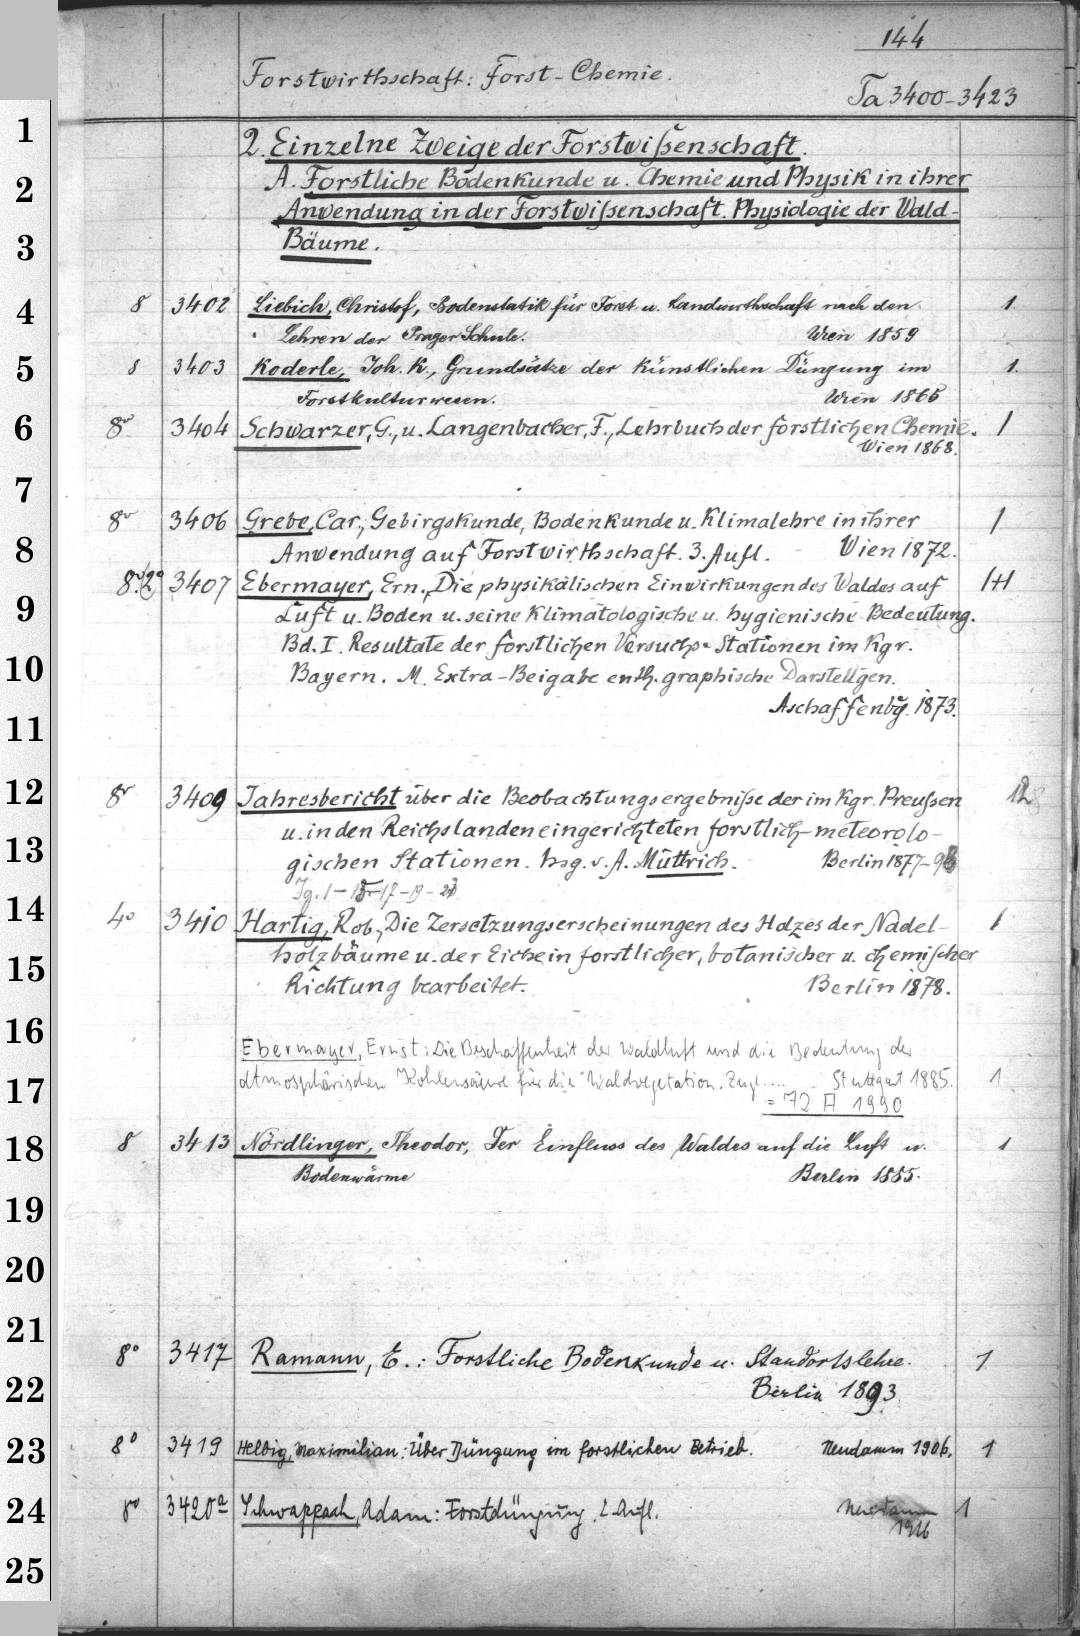 144
Forstwirthschaft: Forst-Chemie.
Ta 3400-3423
1
2. Einzelne Zweige der Forstwißenschaft.
2
A. Forstliche Bodenkunde u. Chemie und Physik in ihrer
Anwendung in der Forstwißenschaft. Physiologie der Wald-
3
Bäume.
4
8 3402 Liebich, Christof, Bodenstatik für Forst u. Landwirthschaft nach den 1
Lehren der Prager Schule. Wien 1859
5
8 3403 Koderle, Joh. K., Grundsätze der künstlichen Düngung im 1
Forstkulturwesen. Wien 1865
6
8º 3404 Schwarzer, G., u. Langenbacher, F., Lehrbuch der forstlichen Chemie. 1
Wien 1868.
7
8º 3406 Grebe, Car., Gebirgskunde, Bodenkunde u. Klimalehre in ihrer 1
8
Anwendung auf Forstwirthschaft. 3. Aufl. Wien 1872.
8º.(2º) 3407 Ebermayer, Ern., Die physikalischen Einwirkungen des Waldes auf 1+1
9
Luft u. Boden u. seine klimatologische u. hygienische Bedeutung.
Bd. I. Resultate der forstlichen Versuchs-Stationen im Kgr.
10
Bayern. M. Extra-Beigabe enth. graphische Darstellgen.
Aschaffenbg. 1873.
11
12
8º 3409 Jahresbericht über die Beobachtungsergebniße der im Kgr. Preußen 12
u. in den Reichslanden eingerichteten forstlich-meteorolo-
13
gischen Stationen. hsg. v. A. Müttrich. Berlin 1877-96
Jg. 1-15-17-19-
14
4º 3410 Hartig, Rob., Die Zersetzungserscheinungen des Holzes der Nadel- 1
holzbäume u. der Eiche in forstlicher, botanischer u. chemischer
15
Richtung bearbeitet. Berlin 1878.
16
Ebermayer, Ernst: Die Beschaffenheit der Waldluft und die Bedeutung der
17
atmosphärischen Kohlensäure für die Waldvegetation. Zugl.... Stuttgart 1885. 1
= 72 A 1990
18
8 3413 Nördlinger, Theodor, Der Einfluss des Waldes auf die Luft u. 1
Bodenwärme Berlin 1885.
19
20
21
8º 3417 Ramann, E.: Forstliche Bodenkunde u. Standortslehre. 1
22
Berlin 1893
23
8º 3419 Helbig, Maximilian: Über Düngung im forstlichen Betrieb. Neudamm 1906. 1
24
8º 3420a Schwappach, Adam: Forstdüngung. 2. Aufl. Neudamm 1
1916
25